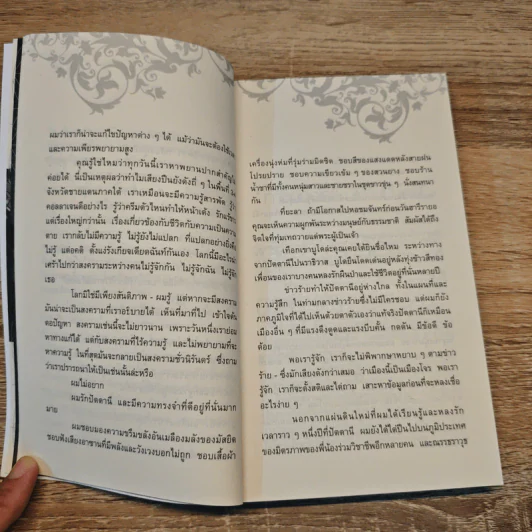 ผมว่าเราก็น่าจะแก้ไขปัญหาต่าง ๆ ได้ แม้ว่ามันจะต้องใช้เวลา
และความเพียรพยายามสูง
คุณรู้ใช่ไหมว่าทุกวันนี้เราหาพยานปากสำคัญไม่
ค่อยได้ นี่เป็นเหตุผลว่าทำไมเสียงปืนยังดังถี่ ๆ ในพื้นที่
จังหวัดชายแดนภาคใต้ เราเหมือนจะมีความรู้สารพัด รู้ว่า
คอลลาเจนดีอย่างไร รู้ว่าครีมตัวไหนทำให้หน้าเด้ง รักแร้ขาว
แต่เรื่องใหญ่กว่านั้น เรื่องเกี่ยวข้องกับชีวิตกับความเป็นความ
ตาย เรากลับไม่มีความรู้ ไม่รู้ยังไม่แปลก ที่แปลกอย่างยิ่งคือ
ไม่รู้ แต่อคติ ตั้งแง่รังเกียจเดียดฉันท์กันเอง โลกนี้มีอะไรน่า
เศร้าไปกว่าสงครามระหว่างคนไม่รู้จักกัน ไม่รู้จักฉัน ไม่รู้จัก
เธอ
โลกมิใช่มีเพียงสันติภาพ - ผมรู้ แต่หากจะมีสงคราม
มันน่าจะเป็นสงครามที่เราอธิบายได้ เห็นที่มาที่ไป เข้าใจต้น
ตอปัญหา สงครามเช่นนี้จะไม่ยาวนาน เพราะวันหนึ่งเราย่อม
หาทางแก้ได้ แต่กับสงครามที่ไร้ความรู้ และไม่พยายามที่จะ
หาความรู้ ในที่สุดมันจะกลายเป็นสงครามชั่วนิรันดร์ ซึ่งถาม
ว่าเราปรารถนาให้เป็นเช่นนั้นล่ะหรือ
ผมไม่อยาก
ผมรักปัตตานี และมีความทรงจำที่ดีอยู่ที่นั่นมาก
มาย
ผมชอบมองความขรึมขลังอันเมลืองมลังของมัสยิด
ชอบฟังเสียงอาซานที่มีพลังและวังเวงบอกไม่ถูก ชอบเสื้อผ้า
เครื่องนุ่งห่มที่รุ่มร่ามมิดชิด ชอบสีของแสงแดดหลังสายฝน
โปรยปราย ชอบความเขียวเข้ม ๆ ของสวนยาง ชอบร้าน
น้ำชาที่มีทั้งคนหนุ่มสาวและชายชราในชุดขาวขุ่น ๆ นั่งสนทนา
กัน
ที่ยะลา ถ้ามีโอกาสไปหอชมจันทร์ก่อนวันฮารีรายอ
คุณจะเห็นความผูกพันระหว่างมนุษย์กับธรรมชาติ สัมผัสได้ถึง
จิตใจที่ทุ่มเทถวายแด่พระผู้เป็นเจ้า
เทือกเขาบูโดล่ะคุณเคยได้ยินชื่อไหม ระหว่างทาง
จากปัตตานีไปนราธิวาส บูโดยืนโดดเด่นอยู่หลังทุ่งข้าวสีทอง
เพื่อนของเราบางคนหลงรักผืนป่าและใช้ชีวิตอยู่ที่นั่นหลายปี
ข่าวร้ายทำให้ปัตตานีอยู่ห่างไกล ทั้งในแผนที่และ
ความรู้สึก ในท่ามกลางข่าวร้ายซึ่งไม่มีใครชอบ แต่ผมก็ยัง
ภาคภูมิใจที่ได้ไปเห็นด้วยตาตัวเองว่าแท้จริงปัตตานีก็เหมือน
เมืองอื่น ๆ ที่มีแรงดึงดูดและแรงบีบคั้น กดดัน มีข้อดี ข้อ
ด้อย
พอเรารู้จัก เราก็จะไม่พิพากษาหยาบ ๆ ตามข่าว
ร้าย - ซึ่งมักเสียงดังกว่าเสมอ ว่าเมืองนี้เป็นเมืองโจร พอเรา
รู้จัก เราก็จะตั้งสติและไต่ถาม เสาะหาข้อมูลก่อนที่จะหลงเชื่อ
อะไรง่าย ๆ
นอกจากแผ่นดินใหม่ที่ผมได้เรียนรู้และหลงรัก
เวลาราว ๆ หนึ่งปีที่ปัตตานี ผมยังได้ไต่ปีนไปบนภูมิประเทศ
ของมิตรภาพของพี่น้องร่วมวิชาชีพอีกหลายคน และณรรธราวุธ